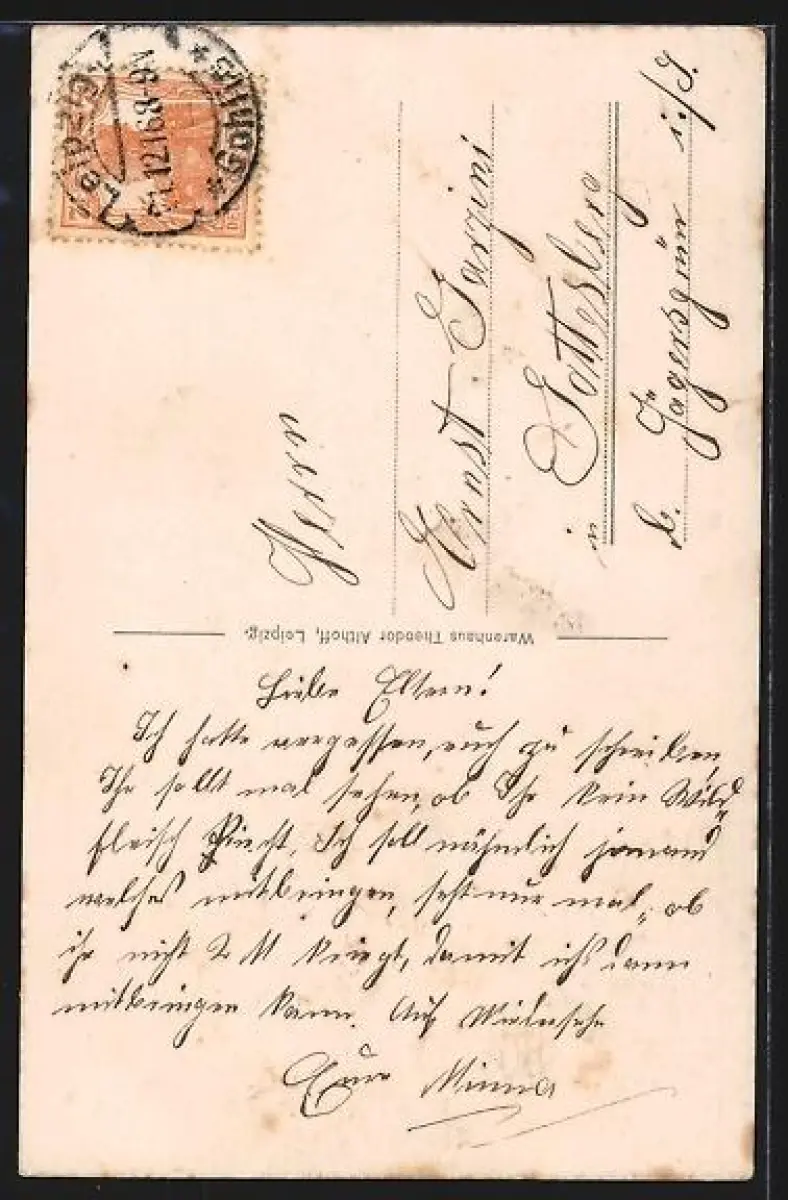 Leipzig
21.12.16.8-9V
Herrn
Ernst Garzini
in Gottesberg
b. Jägersgrün i./S.
Warenhaus Theodor Althoff, Leipzig.
Liebe Eltern!
Ich hatte vergessen, euch zu schreiben,
Ihr sollt mal sehen, ob Ihr kein Wild-
fleisch kriecht, Ich soll nähmlich jemand
welches mitbringen, seht nur mal, ob
ihr nicht 2 M kriegt, damit ichs dann
mitbringen kann. Auf Wiedersehn
Eure Minna